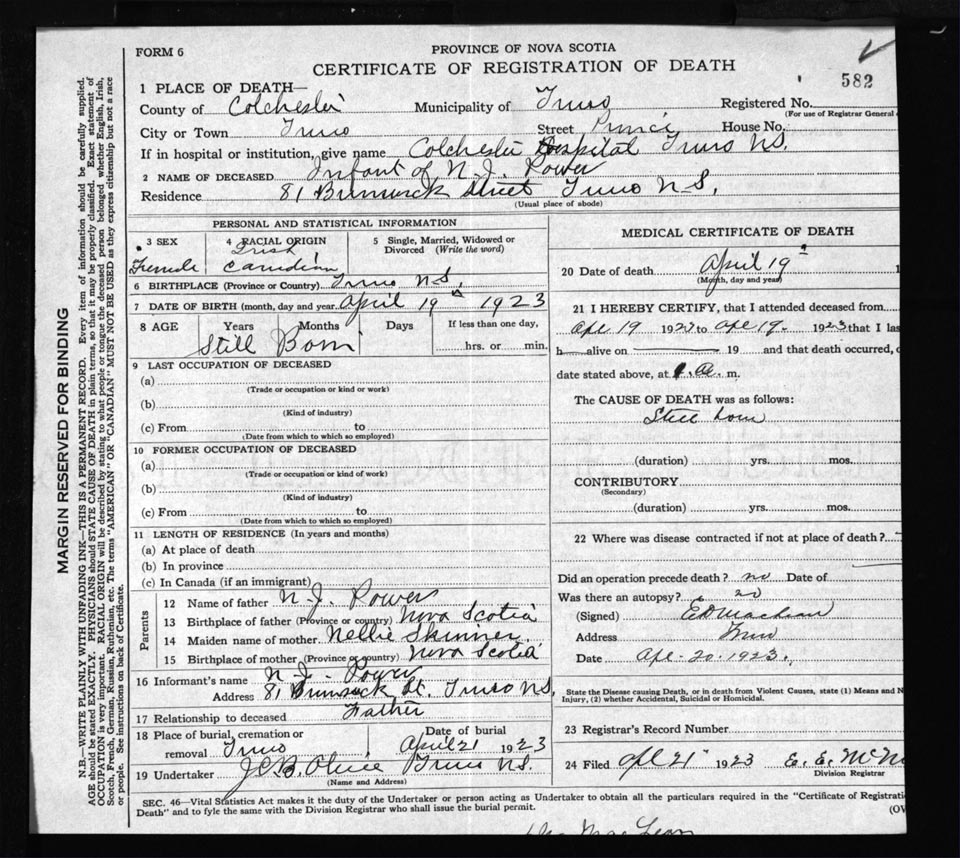 FORM 6
PROVINCE OF NOVA SCOTIA
CERTIFICATE OF REGISTRATION OF DEATH
582
1 PLACE OF DEATH—
County of Colchester Municipality of Truro Registered No.
(For use of Registrar General
City or Town Truro Street Prince House No.
If in hospital or institution, give name Colchester Hospital Truro N.S.
2 NAME OF DECEASED Infant of N. J. Power
Residence 81 Brunswick Street Truro N.S.
(Usual place of abode)
PERSONAL AND STATISTICAL INFORMATION
3 SEX Female
4 RACIAL ORIGIN Irish Canadian
5 Single, Married, Widowed or Divorced (Write the word)
6 BIRTHPLACE (Province or Country) Truro N.S.
7 DATE OF BIRTH (month, day and year) April 19th 1923
8 AGE Years Months Days If less than one day,
Still Born hrs. or min.
9 LAST OCCUPATION OF DECEASED
(a)
(Trade or occupation or kind or work)
(b)
(Kind of industry)
(c) From to
(Date from which to which so employed)
10 FORMER OCCUPATION OF DECEASED
(a)
(Trade or occupation or kind of work)
(b)
(Kind of industry)
(c) From to
(Date from which to which so employed)
11 LENGTH OF RESIDENCE (In years and months)
(a) At place of death
(b) In province
(c) In Canada (if an immigrant)
Parents
12 Name of father N. J. Power
13 Birthplace of father (Province or country) Nova Scotia
14 Maiden name of mother Nellie Skinner
15 Birthplace of mother (Province or country) Nova Scotia
16 Informant's name N. J. Power
Address 81 Brunswick St. Truro N.S.
17 Relationship to deceased Father
18 Place of burial, cremation or removal Truro
Date of burial April 21 1923
19 Undertaker Truro N.S.
(Name and Address)
MEDICAL CERTIFICATE OF DEATH
20 Date of death April 19th 1
(Month, day and year)
21 I HEREBY CERTIFY, that I attended deceased from
Apl 19 1923 to Apl 19 1923 that I las
h alive on 19 and that death occurred, o
date stated above, at a. m.
The CAUSE OF DEATH was as follows:
Still born
(duration) yrs. mos.
CONTRIBUTORY
(Secondary)
(duration) yrs. mos.
22 Where was disease contracted if not at place of death?
Did an operation precede death? no Date of
Was there an autopsy? no
(Signed)
Address Truro
Date Apl. 20. 1923.
State the Disease causing Death, or in death from Violent Causes, state (1) Means and N
Injury, (2) whether Accidental, Suicidal or Homicidal.
23 Registrar's Record Number
24 Filed Apl 21 1923 E. E. McN
Division Registrar
SEC. 46—Vital Statistics Act makes it the duty of the Undertaker or person acting as Undertaker to obtain all the particulars required in the "Certificate of Registrati
Death" and to fyle the same with the Division Registrar who shall issue the burial permit.
(OV
MacLean
MARGIN RESERVED FOR BINDING
N.B.—WRITE PLAINLY WITH UNFADING INK—THIS IS A PERMANENT RECORD. Every item of information should be carefully supplied.
AGE should be stated EXACTLY. PHYSICIANS should STATE CAUSE OF DEATH in plain terms, so that it may be properly classified. Exact statement of
OCCUPATION is very important. RACIAL ORIGIN will be described by stating to what people or tongue the deceased person belonged whether English, Irish,
Scotch, French, German, Russian, Ruthenian, etc. The terms "AMERICAN" OR "CANADIAN" MUST NOT BE USED as they express citizenship but not a race
or people. See instructions on back of Certificate.